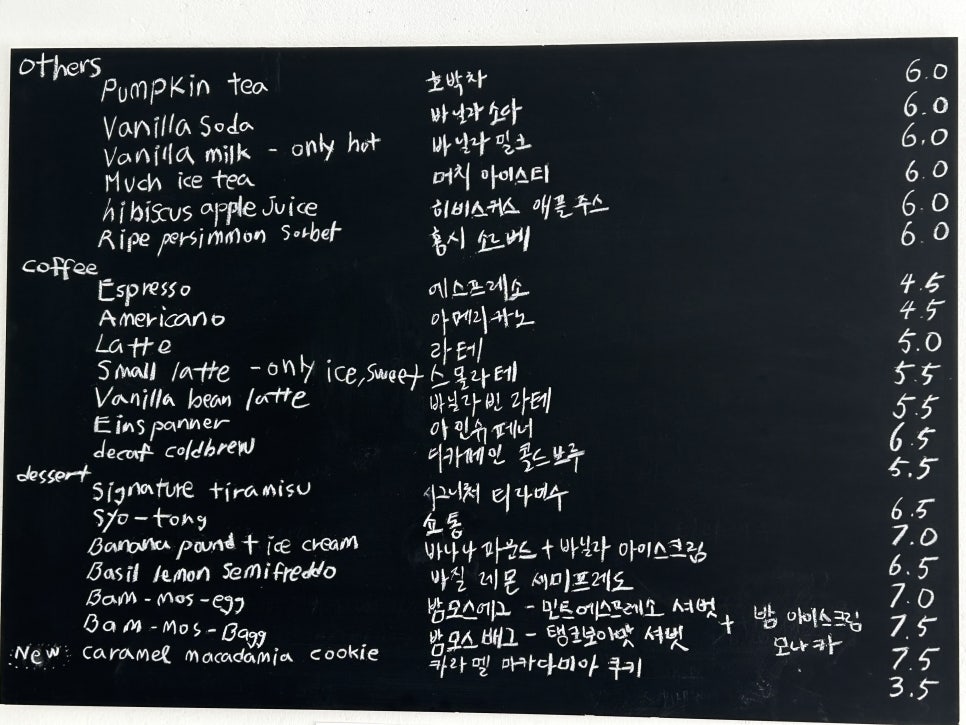 others
Pumpkin tea 호박차 6.0
Vanilla Soda 바닐라 소다 6.0
Vanilla milk - only hot 바닐라 밀크 6.0
Much ice tea 머치 아이스티 6.0
hibiscus apple Juice 히비스커스 애플 주스 6.0
Ripe persimmon Sorbet 홍시 소르베 6.0
coffee
Espresso 에스프레소 4.5
Americano 아메리카노 4.5
Latte 라테 5.0
Small latte - only ice, sweet 스몰라테 5.5
Vanilla bean latte 바닐라빈 라테 5.5
Einspanner 아인슈페너 6.5
decaf coldbrew 디카페인 콜드브루 5.5
dessert
Signature tiramisu 시그니처 티라미수 6.5
Syo-tong 쇼통 7.0
Banana pound + ice cream 바나나 파운드 + 바닐라 아이스크림 6.5
Basil lemon Semifreddo 바질 레몬 세미프레도 7.0
Bam-mos-egg 밤모스에그 - 민트에스프레소 셔벗 7.5
Bam-mos-Bagg 밤모스배그 - 탱크보이맛 셔벗 7.5
+ 밤 아이스크림
모나카
New caramel macadamia cookie 카라멜 마카다미아 쿠키 3.5